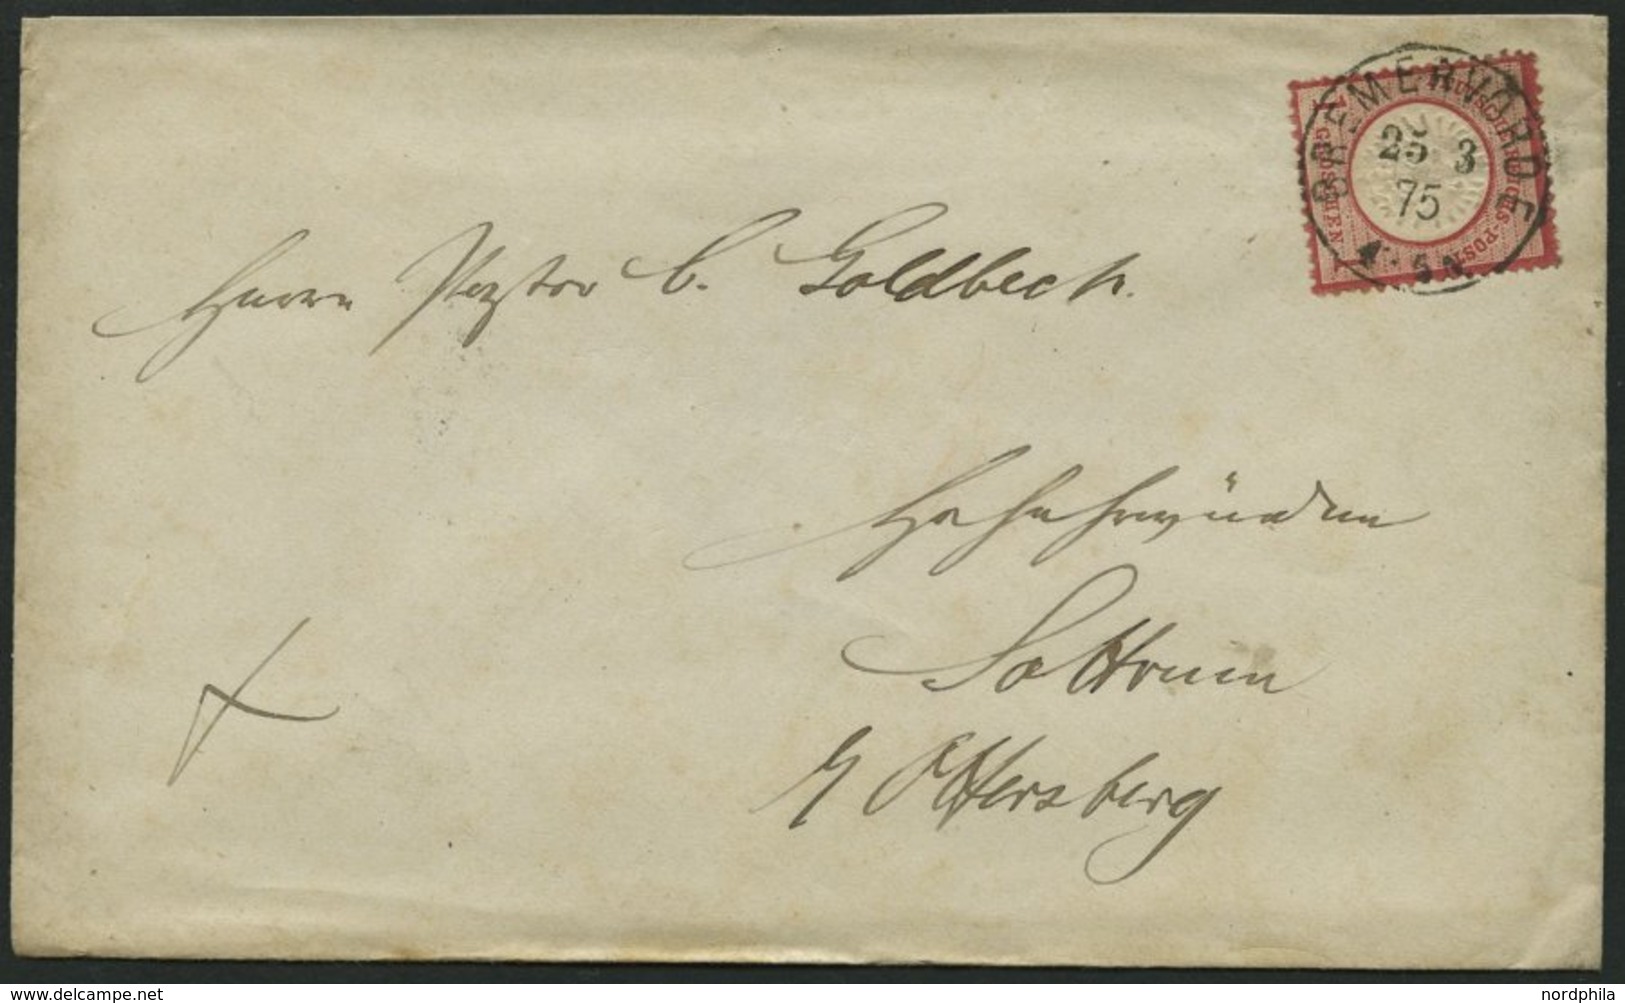 BREMERVÖRDE
25 3
75
4-5 N.
DEUTSCHE REICHS-POST
1 GROSCHEN 1
Herrn Pastor C. Goldbeck.
Hochehrwürden
Sottrum
b/ Ottersberg
delcampe.net
nordphila